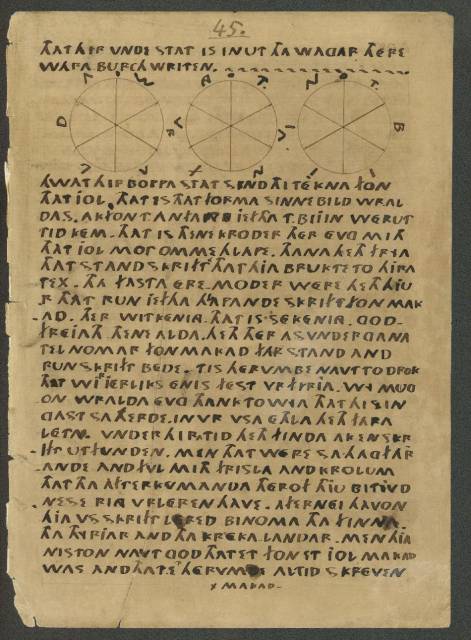 45.
THAT HIR UNDE STAT IS INUT THA WAGAR THERE
WARA BURCH WRITEN.
HWAT HIR BOPPA STAT SEND THI TEKNA FON
THAT IOL. THAT IS THAT FORMA SINNEBILD WRAL
DAS. AK FON T.ANFANG IEFTHA T.BIJIN WERUT
TID KEM. THAT IS THENE KRODER THER EVG MITH
THAT IOL MOT OMMEHLAPE. THANA HETH FRYA
THAT STANDSKRIFT THAT HIA BRUKTE TO HIRA
TEX. THA FASTA ERE-MODER WERE HETH HIU
R THAT RUN IEFTHA HLAPANDE SKRIFT FON MAK
-AD. THER WITKENIG. THAT IS SEKENIG. GOD-
FREIATH THENE ALDA. HETH THER ASUNDERGANA
TELNOMAR FON MAKAD FAR STAND AND
RUNSKRIFT BEDE. TIS THERUMBE NAVT TO DROK
THAT WI R IERLIKS ENIS FEST VR FYRIA. WI MUG
ON WRALDA EVG THANK TO WYA THAT HI SIN
GAST SA HERDE. IN VR USA ETHLA HETH FARA
LETN. UNDER HIRA TID HETH FINDA AK EN SKR
-IFT UTFUNDEN. MEN THAT WERE SA HAGFAR
-ANDE AND FUL MITH FRISLA AND KROLUM
THAT THA AFTERKUMANDA THEROF THIU BITIVD
NESE RING VRLEREN HAVE. AFTERNEI HAVON
HIA US SKRIFT LERED BINOMA THA FINNA.
THA THYRIAR AND THA KREKALANDAR. MEN HIA
NISTON NAVT GOD THAT ET FON ET IOL MAKAD
WAS AND THAT ET THERUMBE ALTID SKREVEN
MAKAD-